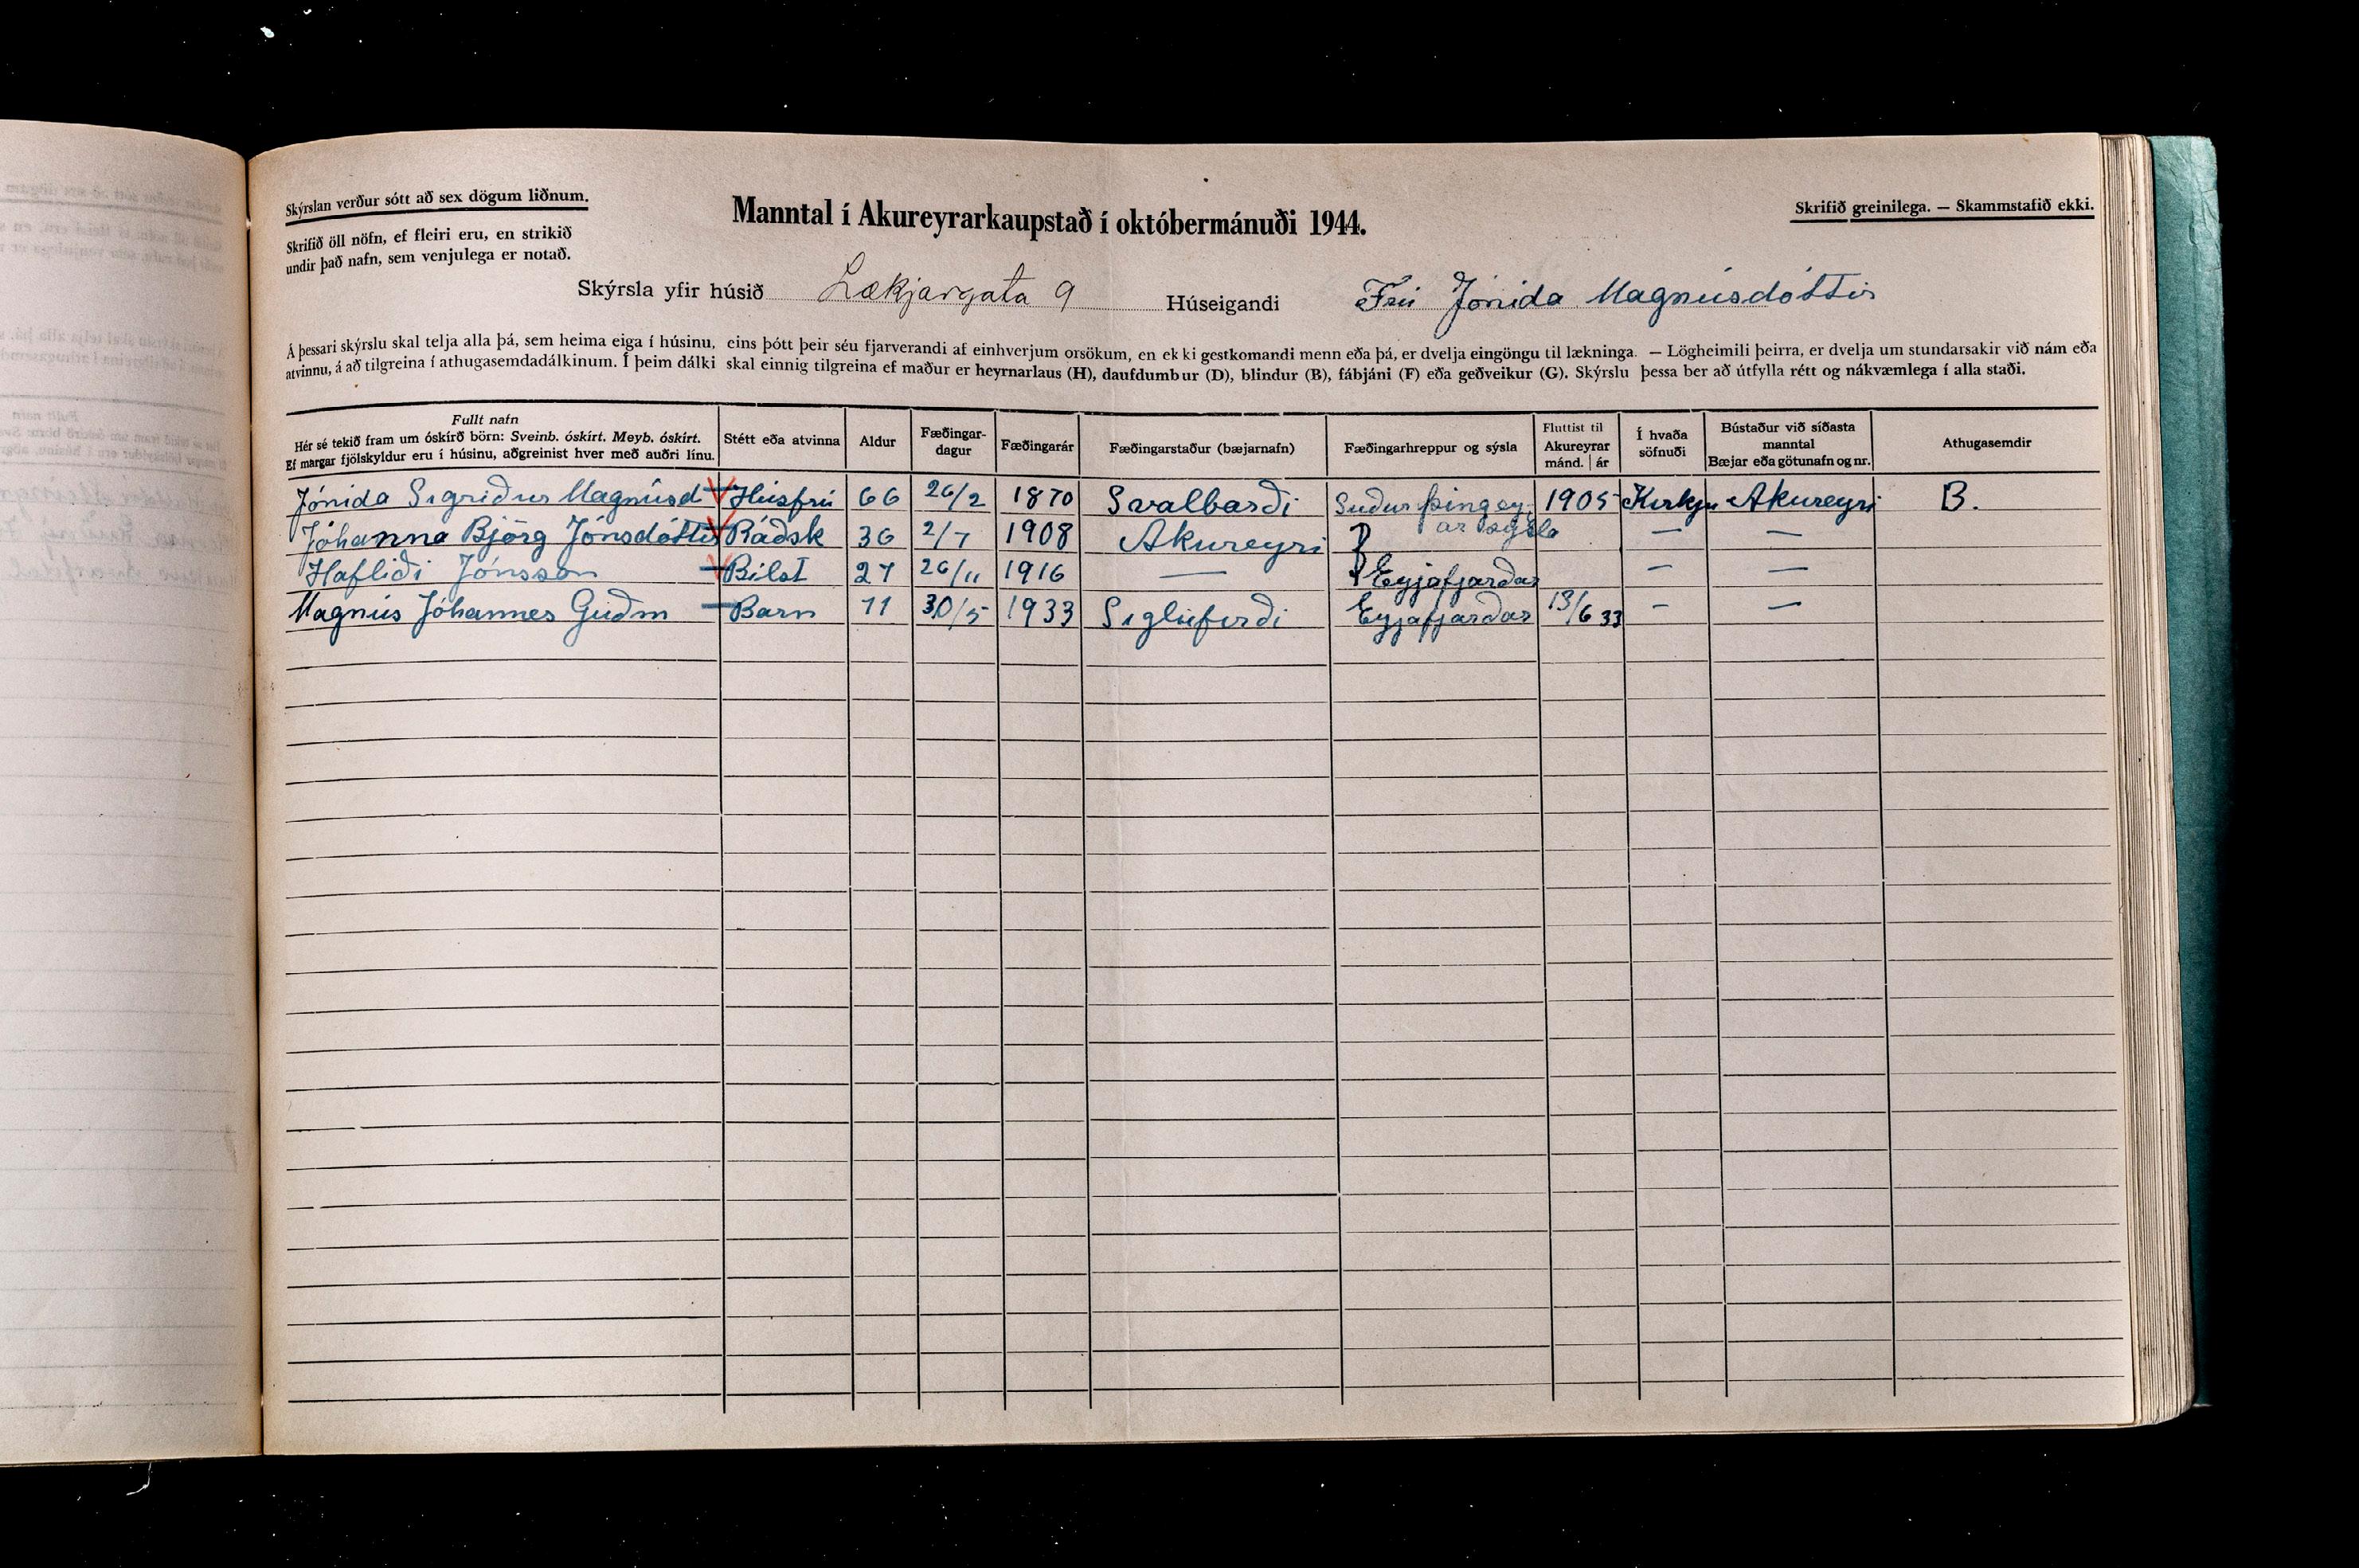 Skýrslan verður sótt að sex dögum liðnum.
Skrifið öll nöfn, ef fleiri eru, en strikið
undir það nafn, sem venjulega er notað.
Manntal í Akureyrarkaupstað í októbermánuði 1944.
Skrifið greinilega. — Skammstafið ekki.
Skýrsla yfir húsið Lækjargata 9 Húseigandi Frú Jónida Magnúsdóttir
Á þessari skýrslu skal telja alla þá, sem heima eiga í húsinu, eins þótt þeir séu fjarverandi af einhverjum orsökum, en ekki gestkomandi menn eða þá, er dvelja eingöngu til lækninga. — Lögheimili þeirra, er dvelja um stundarsakir við nám eða
atvinnu, á að tilgreina í athugasemdadálkinum. Í þeim dálki skal einnig tilgreina ef maður er heyrnarlaus (H), daufdumbur (D), blindur (B), fábjáni (F) eða geðveikur (G). Skýrslu þessa ber að útfylla rétt og nákvæmlega í alla staði.
Fullt nafn
Hér sé tekið fram um óskírð börn: Sveinb. óskírt. Meyb. óskírt.
Ef margar fjölskyldur eru í húsinu, aðgreinist hver með auðri línu.
Stétt eða atvinna
Aldur
Fæðingar-
dagur
Fæðingarár
Fæðingarstaður (bæjarnafn)
Fæðingarhreppur og sýsla
Fluttist til
Akureyrar
mánd. | ár
Í hvaða
söfnuði
Bústaður við síðasta
manntal
Bæjar eða götunafn og nr.
Athugasemdir
Jónida Sigríður Magnúsd Húsfrú 66 26/2 1870 Svalbarði Suður þingey 1905 Kirkju Akureyri B.
ar sýsla
Jóhanna Björg Jónsdóttir Ráðsk 36 2/7 1908 Akureyri — —
Hafliði Jónsson Bílst 27 26/11 1916 — Eyjafjarðar — —
Magnús Jóhannes Guðm Barn 11 30/5 1933 Siglufirði Eyjafjarðar 13/6 33 — —